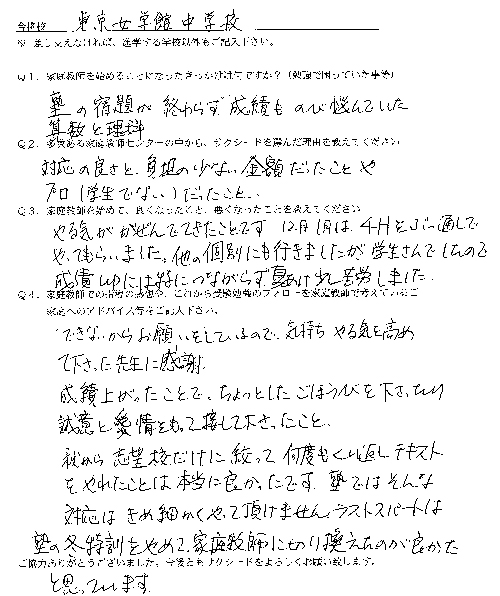 合格校 東京女学館中学校
※ 差し支えなければ、進学する学校以外もご記入下さい。
Q1．家庭教師を始めることになったきっかけは何ですか？（勉強で困っていた事等）
塾の宿題が終わらず成績ものび悩んでいた
算数と理科
Q2．多数ある家庭教師センターの中から、サクシードを選んだ理由を教えてください
対応の良さと、負担の少ない金額だったことや
プロ（学生でない）だったこと．
Q3．家庭教師を始めて、良くなったこと、悪くなったことを教えてください
やる気がかぜんでてきたことです 12月 1月は、4Hとぶっ通しで
やってもらいました。他の個別にも行きましたが学生さんでしたので
成績upには特につながらず見あけ少し苦労しました。
Q4．家庭教師での指導の感想や、これから受験勉強のフォローを家庭教師で考えているご
家庭へのアドバイス等をご記入下さい。
できないからお願いをしているので、気持ちやる気を高め
て下さった先生に感謝．
成績上がったことで、ちょっとしたごほうびを下さったり
誠意と愛情をもって接して下さったこと．
秋から志望校だけに絞って何度もくり返しテキスト
をやれたことは本当に良かったです。塾ではそんな
対応はきめ細かくやって頂けません。ラストスパートは
塾の冬特訓をやめて、家庭教師に切り換えたのが良かった
ご協力ありがとうございました。今後ともサクシードをよろしくお願い致します。
と思っています．